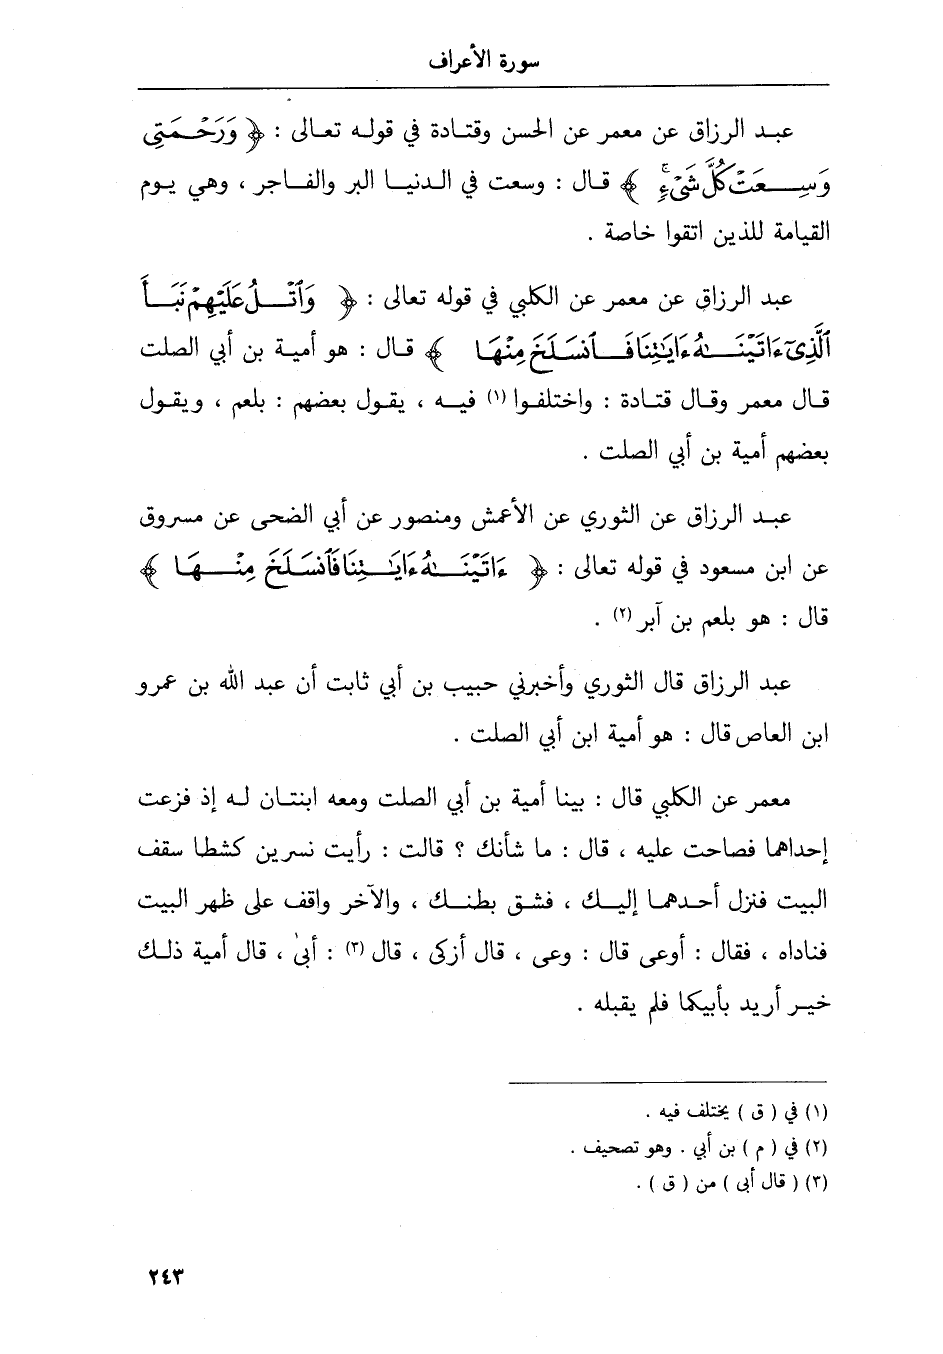 سورة الأعراف
عبد الرزاق عن معمر عن الحسن وقتادة في قوله تعالى : ﴿ وَرَحْمَتِى
وَسِعَتْ كُلَّ شَىْءٍ ﴾ قال : وسعت في الدنيا البر والفاجر ، وهي يوم
القيامة للذين اتقوا خاصة .
عبد الرزاق عن معمر عن الكلبي في قوله تعالى : ﴿ وَٱتْلُ عَلَيْهِمْ نَبَأَ
ٱلَّذِىٓ ءَاتَيْنَـٰهُ ءَايَـٰتِنَا فَٱنسَلَخَ مِنْهَا ﴾ قال : هو أمية بن أبي الصلت
قال معمر وقال قتادة : واختلفوا (١) فيه ، يقول بعضهم : بلعم ، ويقول
بعضهم أمية بن أبي الصلت .
عبد الرزاق عن الثوري عن الأعمش ومنصور عن أبي الضحى عن مسروق
عن ابن مسعود في قوله تعالى : ﴿ ءَاتَيْنَـٰهُ ءَايَـٰتِنَا فَٱنسَلَخَ مِنْهَا ﴾
قال : هو بلعم بن آبر (٢) .
عبد الرزاق قال الثوري وأخبرني حبيب بن أبي ثابت أن عبد الله بن عمرو
ابن العاص قال : هو أمية ابن أبي الصلت .
معمر عن الكلبي قال : بينا أمية بن أبي الصلت ومعه ابنتان له إذ فزعت
إحداهما فصاحت عليه ، قال : ما شأنك ؟ قالت : رأيت نسرين كشطا سقف
البيت فنزل أحدهما إليك ، فشق بطنك ، والآخر واقف على ظهر البيت
فناداه ، فقال : أوعى قال : وعى ، قال أزكى ، قال (٣) : أبىٰ ، قال أمية ذلك
خير أريد بأبيكما فلم يقبله .
(١) في ( ق ) يختلف فيه .
(٢) في ( م ) بن أبي . وهو تصحيف .
(٣) ( قال أبى ) من ( ق ) .
٢٤٣